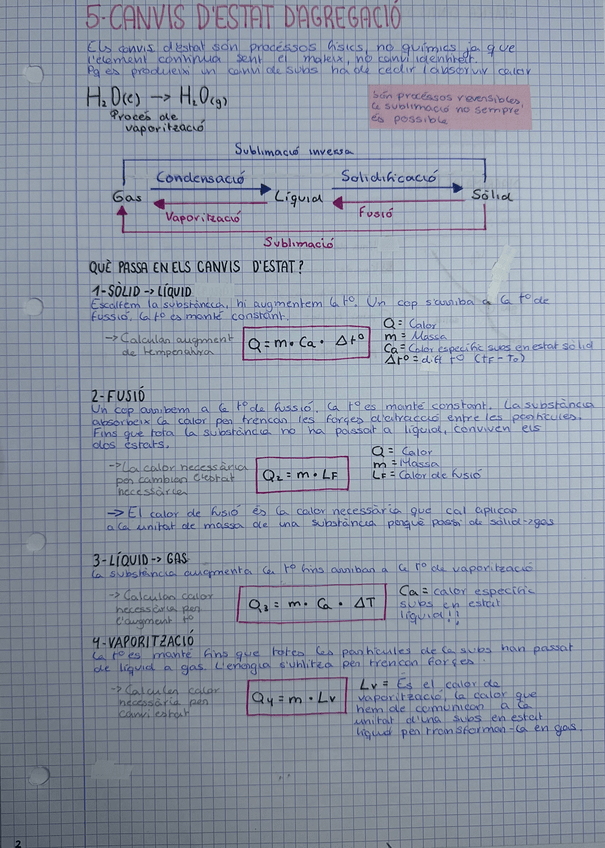 5-CANVIS D'ESTAT D'AGREGACIÓ
Els canvis d'estat són processos físics, no químics ja que
l'element continua sent el mateix, no canvi identitat.
Pq es produeixi un canvi de subs ha de cedir l absorvir calor
H₂O(l) -> H₂O(g)
Procés de
vaporització
Són processos reversibles,
la sublimació no sempre
és possible
Sublimació inversa
Condensació
Solidificació
Gas
Líquid
Sòlid
Vaporització
Fusió
Sublimació
QUÈ PASSA EN ELS CANVIS D'ESTAT?
1-SÒLID -> LÍQUID
Escalfem la substància, hi augmentem la tº. Un cop s'arriba a la tº de
fussió, la tº es manté constant.
-> Calcular augment
de temperatura
Q = m · Ca · Δtº
Q = Calor
m = Massa
Ca = Calor específic subs en estat sòlid
Δtº = dif tº (tF - To)
2-FUSIÓ
Un cop arribem a la tº de fussió, la tº es manté constant. La substància
absorbeix la calor per trencar les forçes d'atracció entre les partícules.
Fins que tota la substància no ha passat a líquid, conviven els
dos estats.
-> La calor necessària
per cambiar l'estat
necessària
Q₂ = m · LF
Q = Calor
m = Massa
LF = Calor de fusió
-> El calor de fusió és la calor necessària que cal aplicar
a la unitat de massa de una substància perquè passi de sòlid->gas
3-LÍQUID -> GAS
La substància augmenta la tº fins arribar a la Tº de vaporització
-> Calcular calor
necessària per
l'augment tº
Q₃ = m · Ca · ΔT
Ca = calor específic
subs en estat
líquid!!
4-VAPORITZACIÓ
La tº es manté fins que totes les partícules de la subs han passat
de líquid a gas. L'energia s'utilitza per trencar forçes.
-> Calcular calor
necessària per
canvi estat
Q₄ = m · Lv
Lv = És el calor de
vaporització, la calor que
hem de comunicar a la
unitat d'una subs en estat
líquid per transformar-la en gas.
2